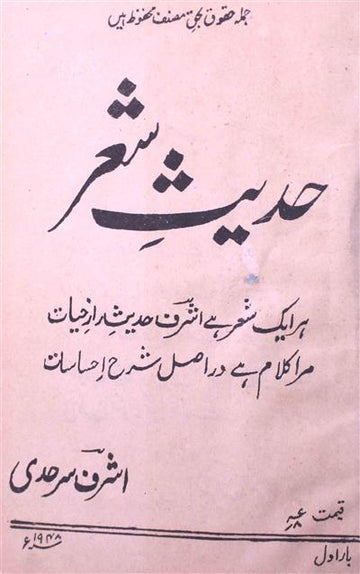 جملہ حقوق بحق مصنف محفوظ ہیں
حدیثِ شعر
ہر ایک شعر ہے اشرفؔ حدیثِ رازِ حیات
مرا کلام ہے دراصل شرح احساسات
اشرفؔ سرحدی
قیمت
۱۹۴۸ء
بار اول